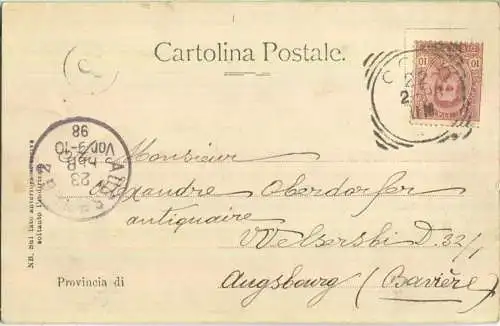 Cartolina Postale.
Monsieur
Alexandre Oberdorfer
antiquaire
Welserstr. D. 32/1
Augsbourg (Bavière)
Provincia di
NB. Sul lato anteriore si scrive
soltanto l'indirizzo
23
FEB
Vor. 9-10
98
10
10